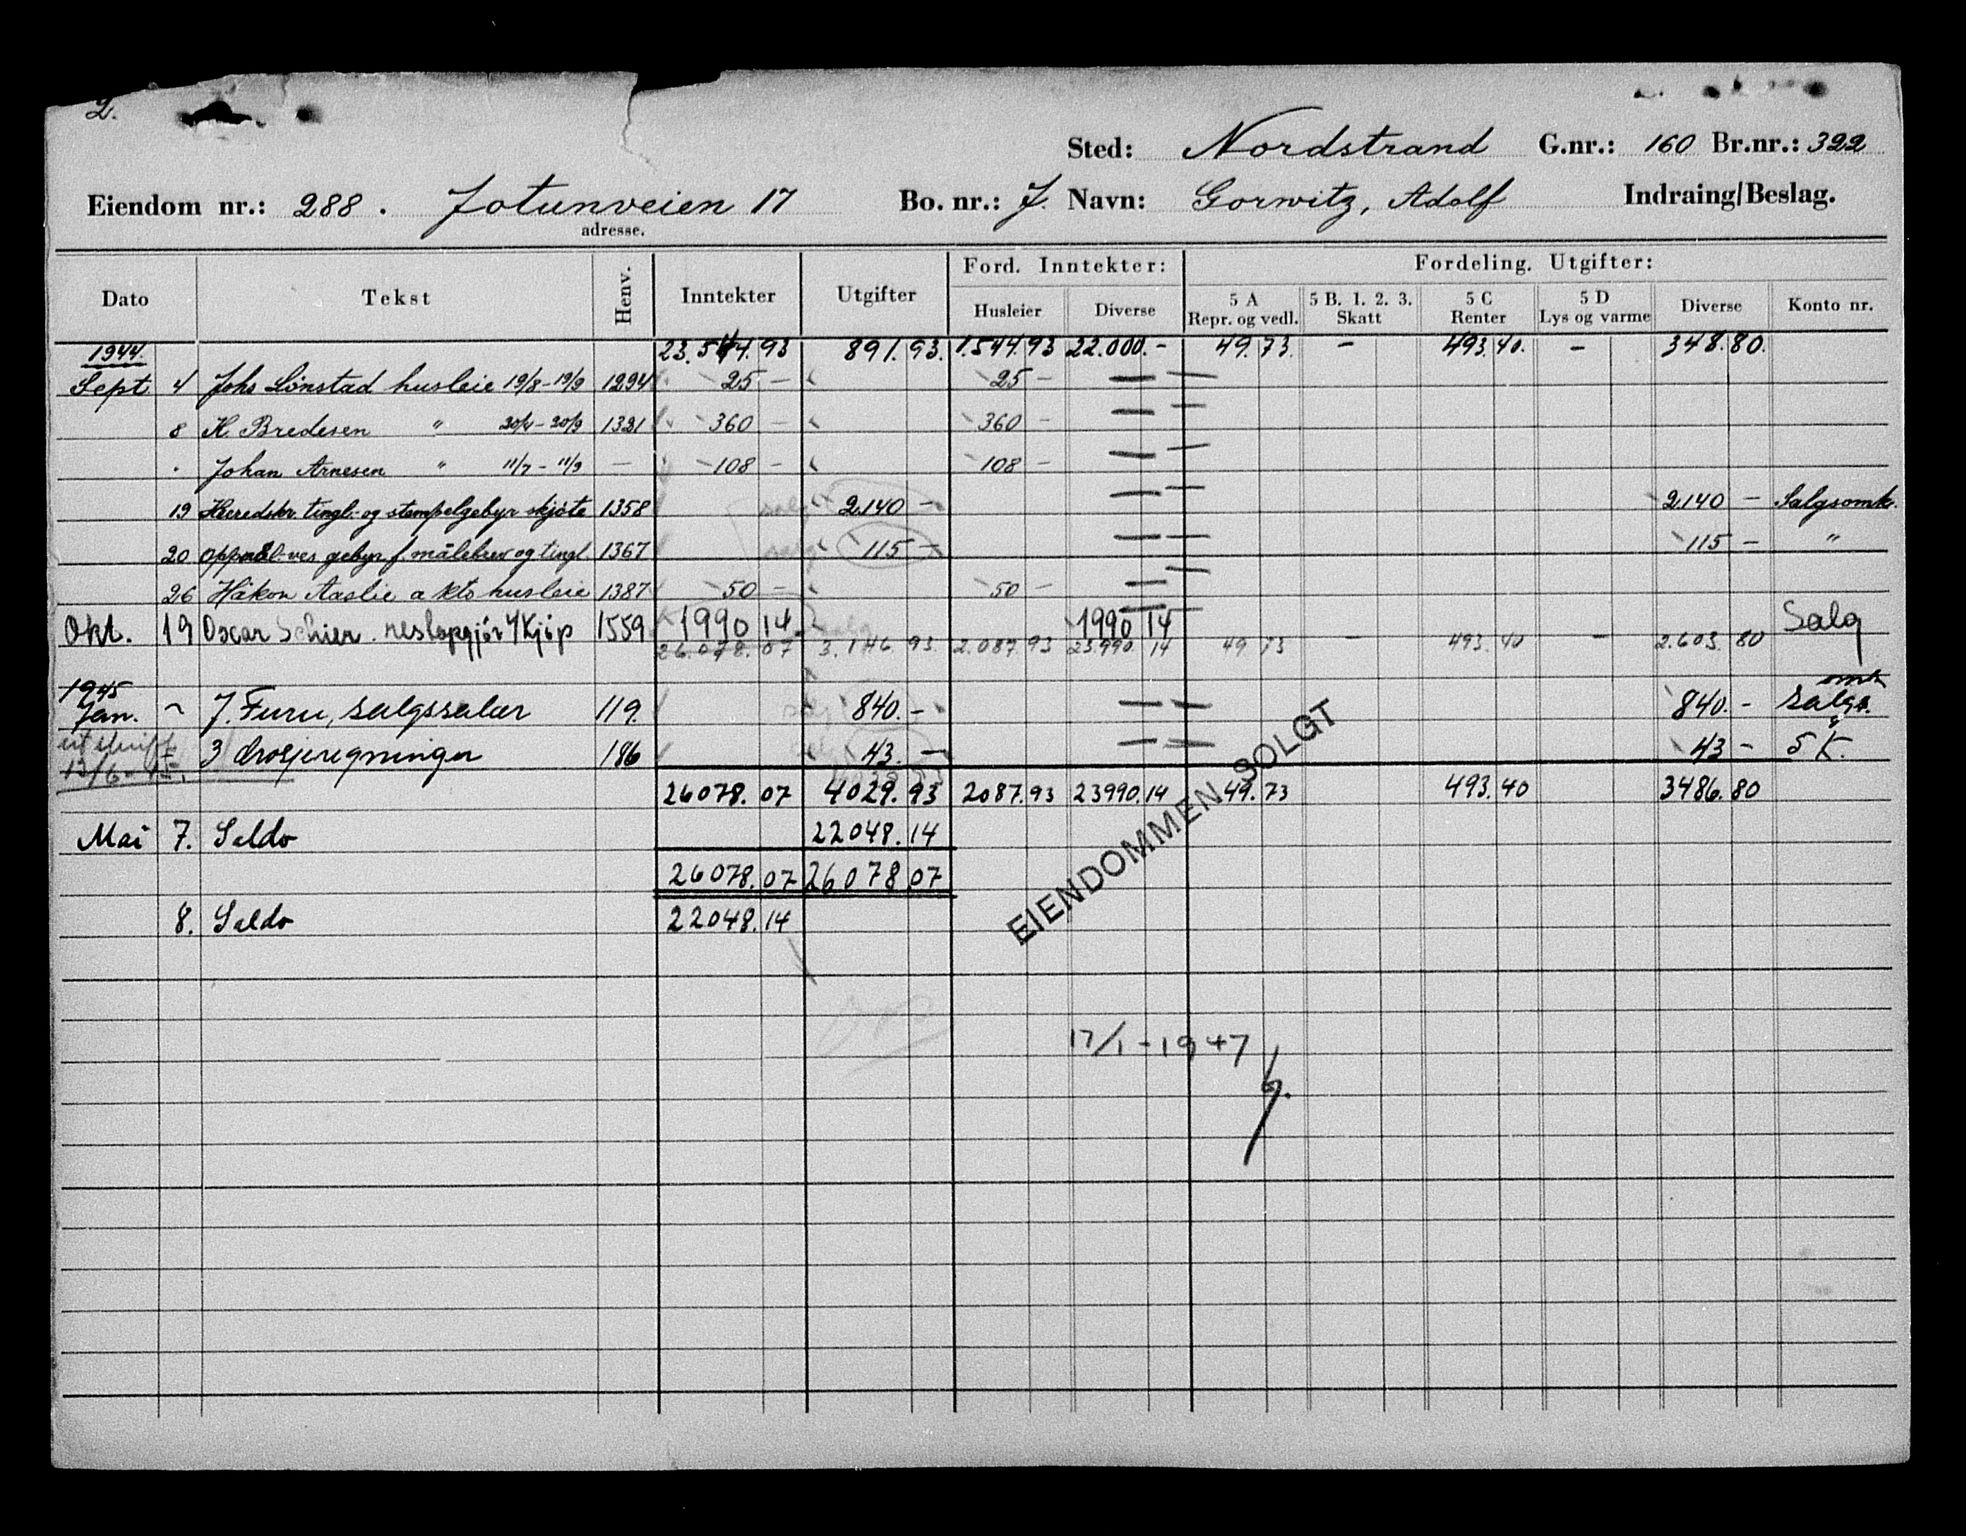 2.
Sted: Nordstrand G.nr.: 160 Br.nr.: 322
Eiendom nr.: 288. Jotunveien 17 Bo. nr.: J. Navn: Gorwitz, Adolf Indraing/Beslag.
adresse.
Ford. Inntekter: Fordeling. Utgifter:
Dato Tekst Henv. Inntekter Utgifter Husleier Diverse 5 A Repr. og vedl. 5 B. 1. 2. 3. Skatt 5 C Renter 5 D Lys og varme Diverse Konto nr.
1944 23.544.93 891.93. 1.544.93 22.000.- 49.73. - 493.40. - 348.80.
Sept 4 Johs Lönstad husleie 19/8 - 19/9 1294 25 - 25 - — —
8 H. Bredesen " 20/4 - 20/9 1321 360 - 360 - — —
. Johan Arnesen " 11/7 - 11/9 — 108 - 108 - — —
19 Heredskr. tingl.- og stempelgebyr skjøte 1358 salg 2140 - — — 2140 - Salgsomk.
20 Oppmål.ves. gebyr f. målebrev og tingl. 1367 salg 115 - — — 115 - "
26 Håkon Aaslie a kto husleie 1387 50 - 50 - — —
Okt. 19 Oscar Schier. restoppgjør v/Kjøp 1559 1990 14 salg 1990 14 Salg
26.078.07 3.146 93. 2.087.93 23.990. 14 49 73 - 493. 40 - 2.603. 80
1945
Jan. ~ J. Furu, salgssalær 119. salg 840.- — — 840.- Salgs. omk
3 drosjeregninger 186 43. - — — 43 - 5 K.
13/6 - 45.
26078.07 4029.93 2087.93 23990.14 49.73 493.40 3486.80
Mai 7. Saldo 22048.14
26078.07 26078 07
8. Saldo 22048.14
EIENDOMMEN SOLGT
17/1 - 1947